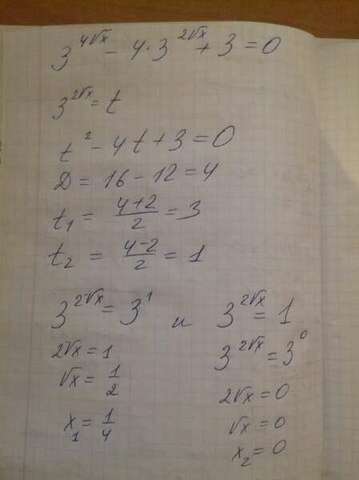 3^{4√x} - 4·3^{2√x} + 3 = 0
3^{2√x} = t
t² - 4t + 3 = 0
D = 16 - 12 = 4
t₁ = \frac{4+2}{2} = 3
t₂ = \frac{4-2}{2} = 1
3^{2√x} = 3¹ и 3^{2√x} = 1
2√x = 1 3^{2√x} = 3⁰
√x = \frac{1}{2} 2√x = 0
x₁ = \frac{1}{4} √x = 0
x₂ = 0